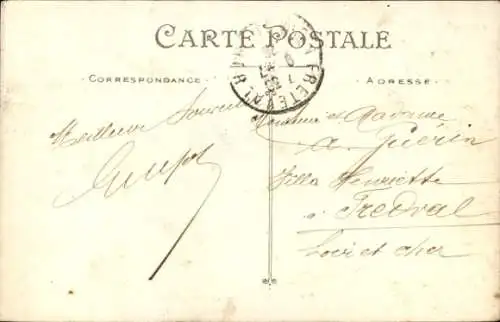 CARTE POSTALE
CORRESPONDANCE
ADRESSE
FRETEVAL
Meilleur Souvenir
Monsieur et Madame
A. Guérin
Villa Henriette
à Fredval
Loir et cher